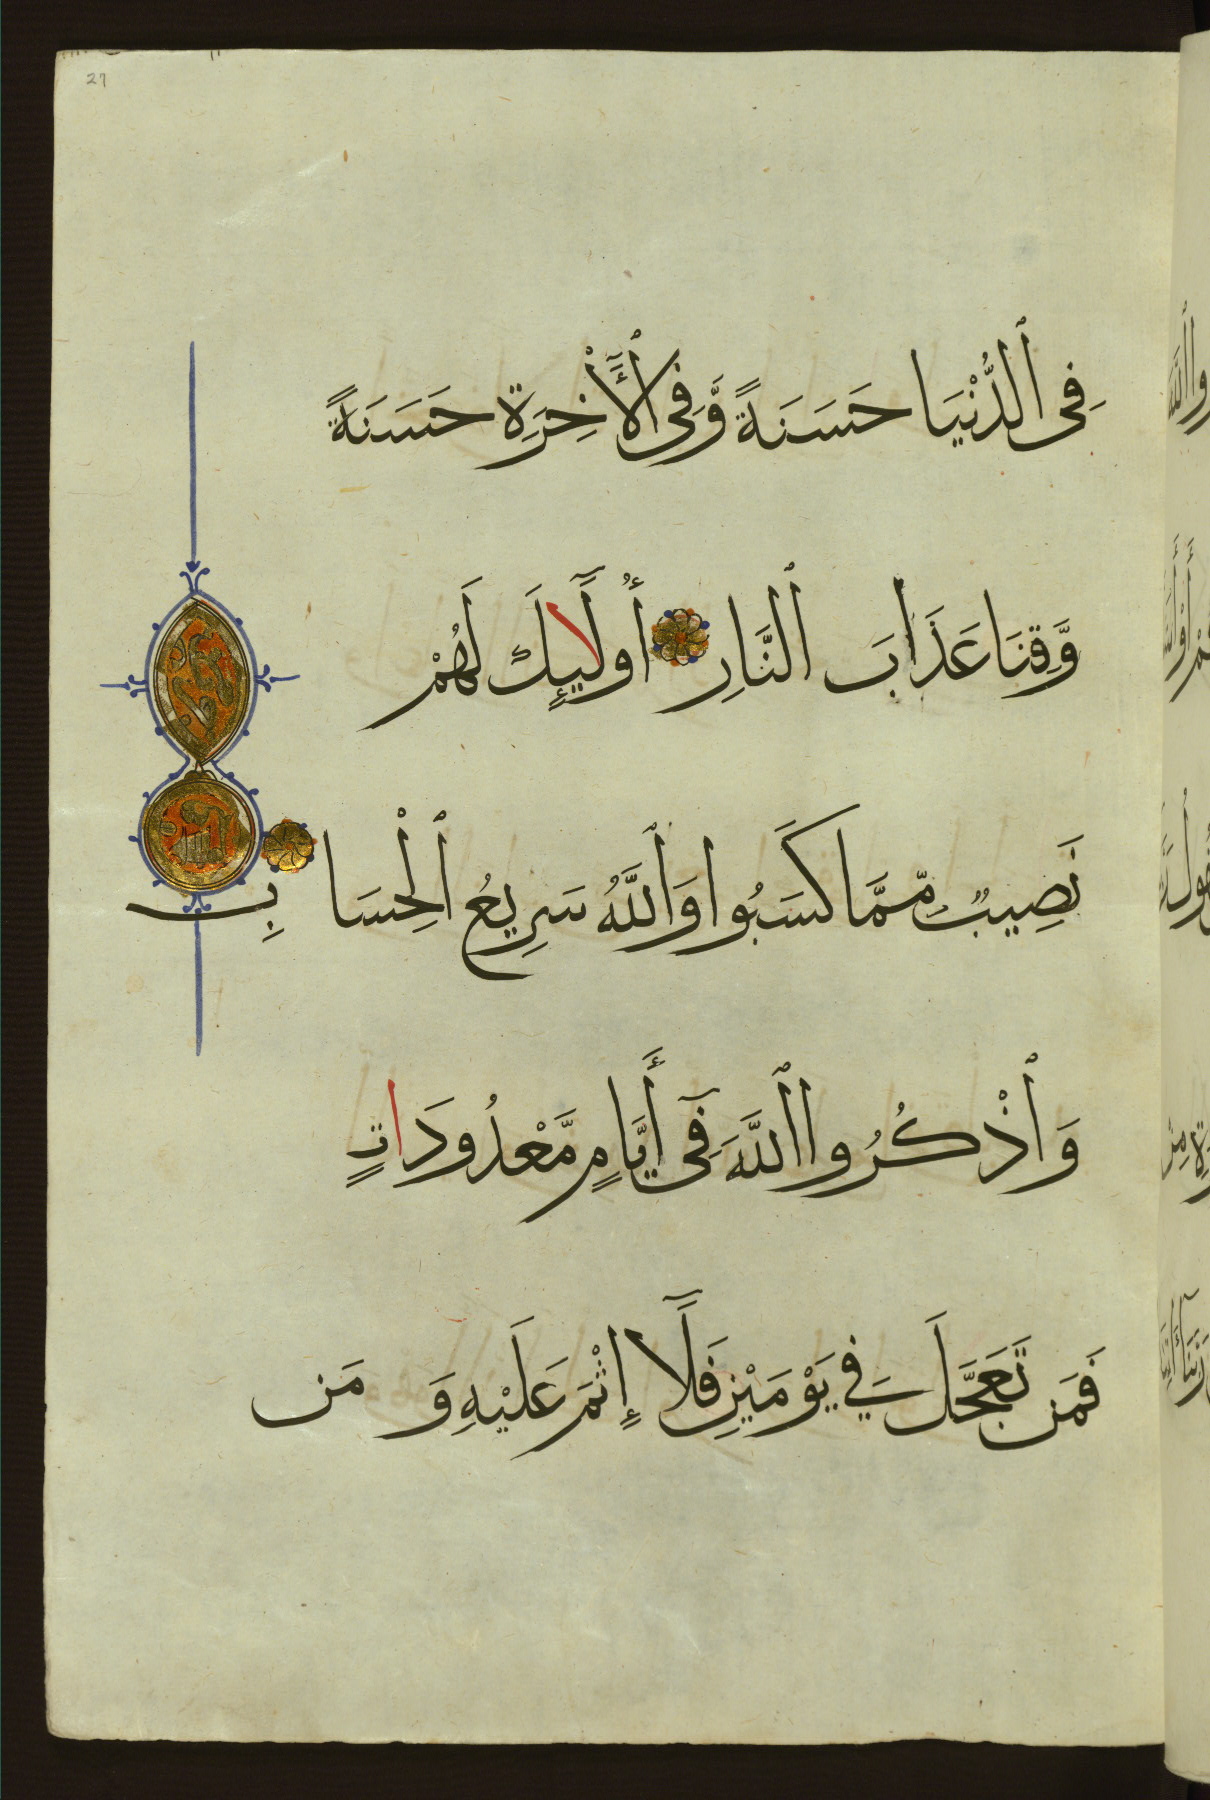 27
فِى ٱلدُّنْيَا حَسَنَةً وَّفِى ٱلْأَٓخِرَةِ حَسَنَةً
وَّقِنَا عَذَابَ ٱلنَّارِ أُولَٰٓئِكَ لَهُمْ
نَصِيبٌ مِّمَّا كَسَبُوا وَٱللَّهُ سَرِيعُ ٱلْحِسَابِ
وَٱذْكُرُوا ٱللَّهَ فِىٓ أَيَّامٍ مَّعْدُودَاتٍ
فَمَن تَعَجَّلَ فِي يَوْمَيْنِ فَلَآ إِثْمَ عَلَيْهِ وَمَن